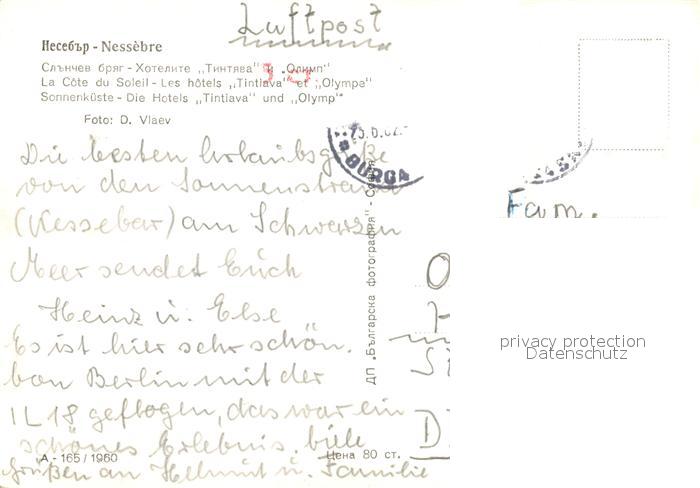 Luftpost
Несебър - Nessèbre
Слънчев бряг - Хотелите „Тинтява" и „Олимп"
La Côte du Soleil - Les hôtels „Tintiava" et „Olympe"
Sonnenküste - Die Hotels „Tintiava" und „Olymp"
Foto: D. Vlaev
BURGA
Die besten Urlaubsgrüße
von den Sonnenstrand
(Nessebar) am Schwarzen
Meer sendet Euch
Heinz u. Else
Es ist hier sehr schön.
von Berlin mit der
IL 18 geflogen, das war ein
schönes Erlebnis. viele
Grüßen an Helmut u. Familie
A - 165 / 1960
Цена 80 ст.
ДП „Българска фотография" - София
Fam.
privacy protection
Datenschutz